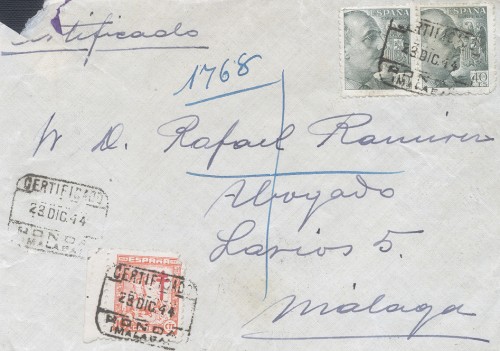 Certificado
ESPAÑA
ESPAÑA
40
CTS
CERTIFICADO
28 DIC 44
RONDA
(MALAGA)
1768
Sr D. Rafael Ramirez
Abogado
Larios 5.
Málaga
CERTIFICADO
28 DIC 44
RONDA
(MALAGA)
ESPAÑA
CERTIFICADO
28 DIC 44
RONDA
(MALAGA)